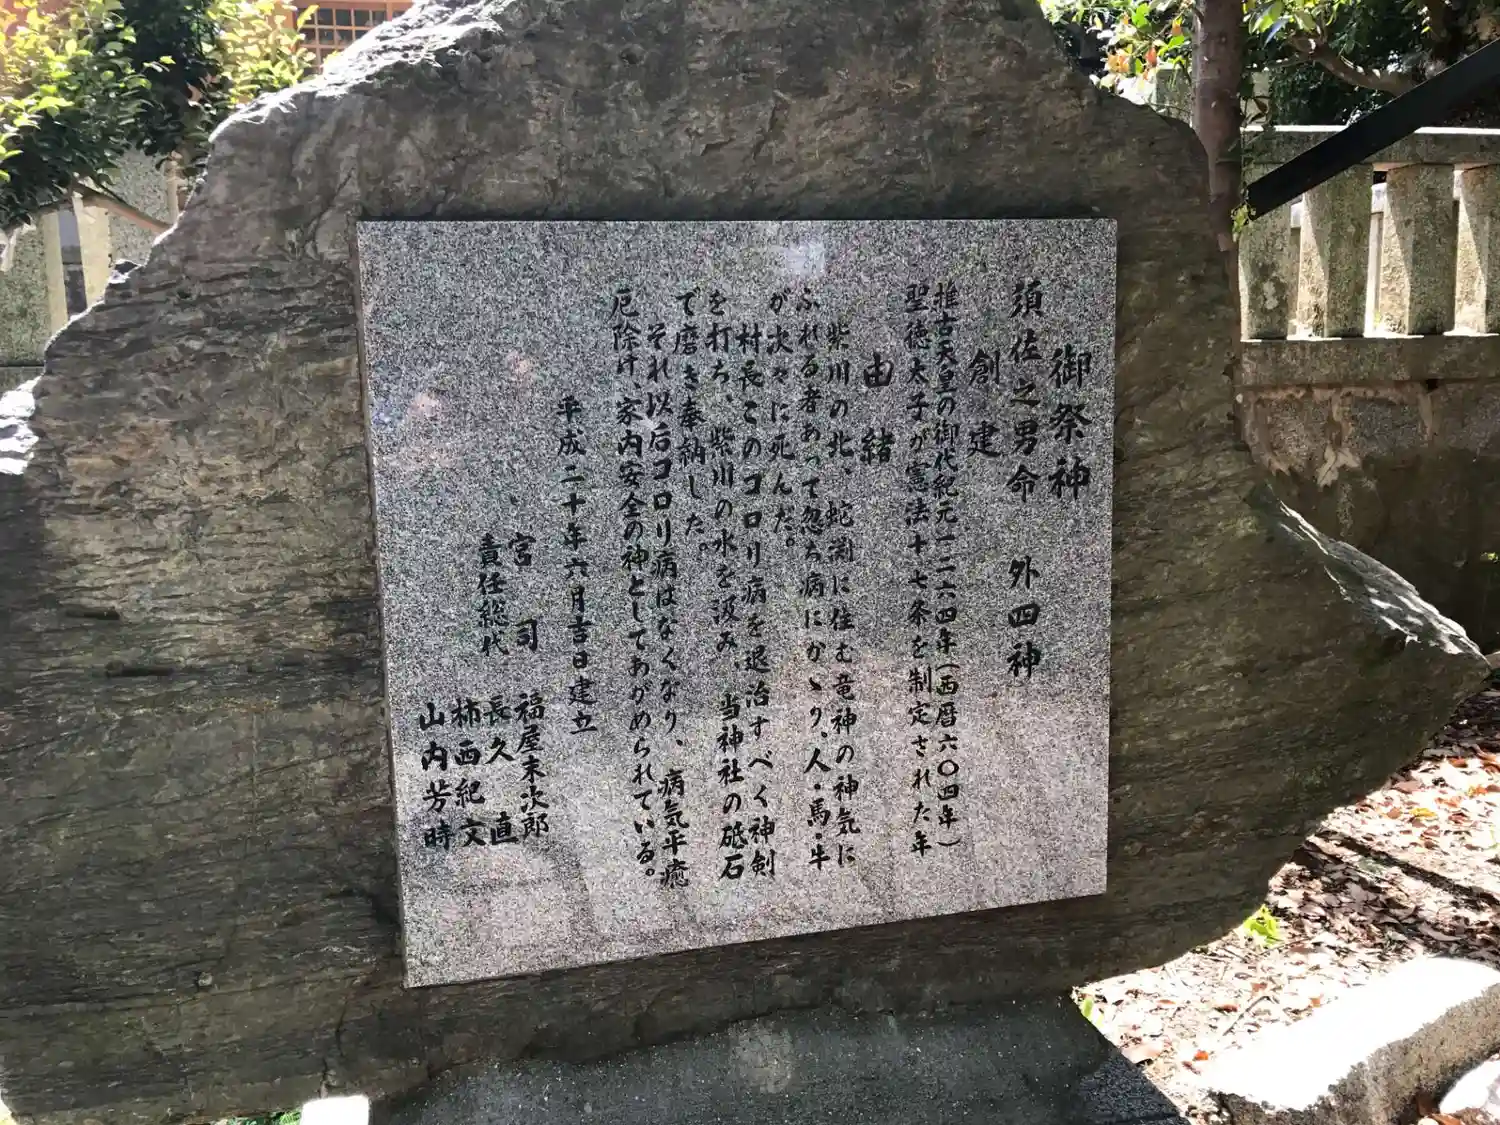 御祭神
須佐之男命 外四神
創建
推古天皇の御代紀元一二六四年(西暦六〇四年)
聖徳太子が憲法十七条を制定された年
由緒
紫川の北、蛇渕に住む竜神の神気に
ふれる者あって忽ち病にかゝり、人・馬・牛
が次々に死んだ。
村長このコロリ病を退治すべく神剣
を打ち、紫川の水を汲み、当神社の砥石
で磨き奉納した。
それ以后コロリ病はなくなり、病気平癒
厄除け、家内安全の神としてあがめられている。
平成二十年六月吉日建立
宮司 福屋末次郎
責任総代 長久直
柿西紀文
山内芳時